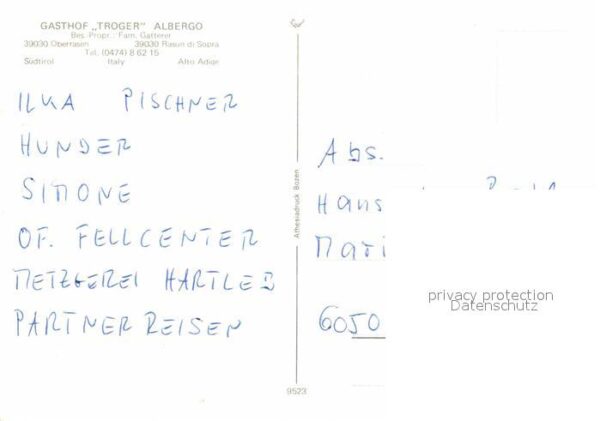 GASTHOF „TROGER" ALBERGO
Bes. Propr.: Fam. Gatterer
39030 Oberrasen 39030 Rasun di Sopra
Tel. (0474) 8 62 15
Südtirol Italy Alto Adige
ILKA PISCHNER
HUNDER
SIMONE
OF. FELLCENTER
METZGEREI HARTLEB
PARTNER REISEN
Athesiadruck Bozen
9523
Abs.
Hans
Mari
6050
privacy protection
Datenschutz